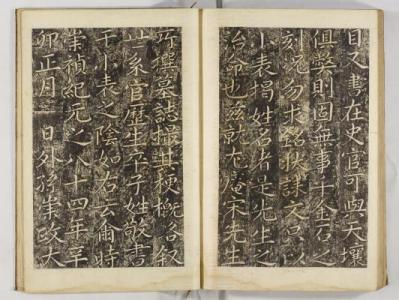 且又書在史官可與天壤
俱獘則固無事于金石之
刻况勿求銘狀文只以
小表揭姓名者是先生之
治命也玆就尤庵宋先生
所撰墓誌撮其梗槪畧叙
世系官歷生卒子姓敬書
于小表之陰如右云爾時
崇禎紀元之八十四年辛
卯正月 日外孫崇政大